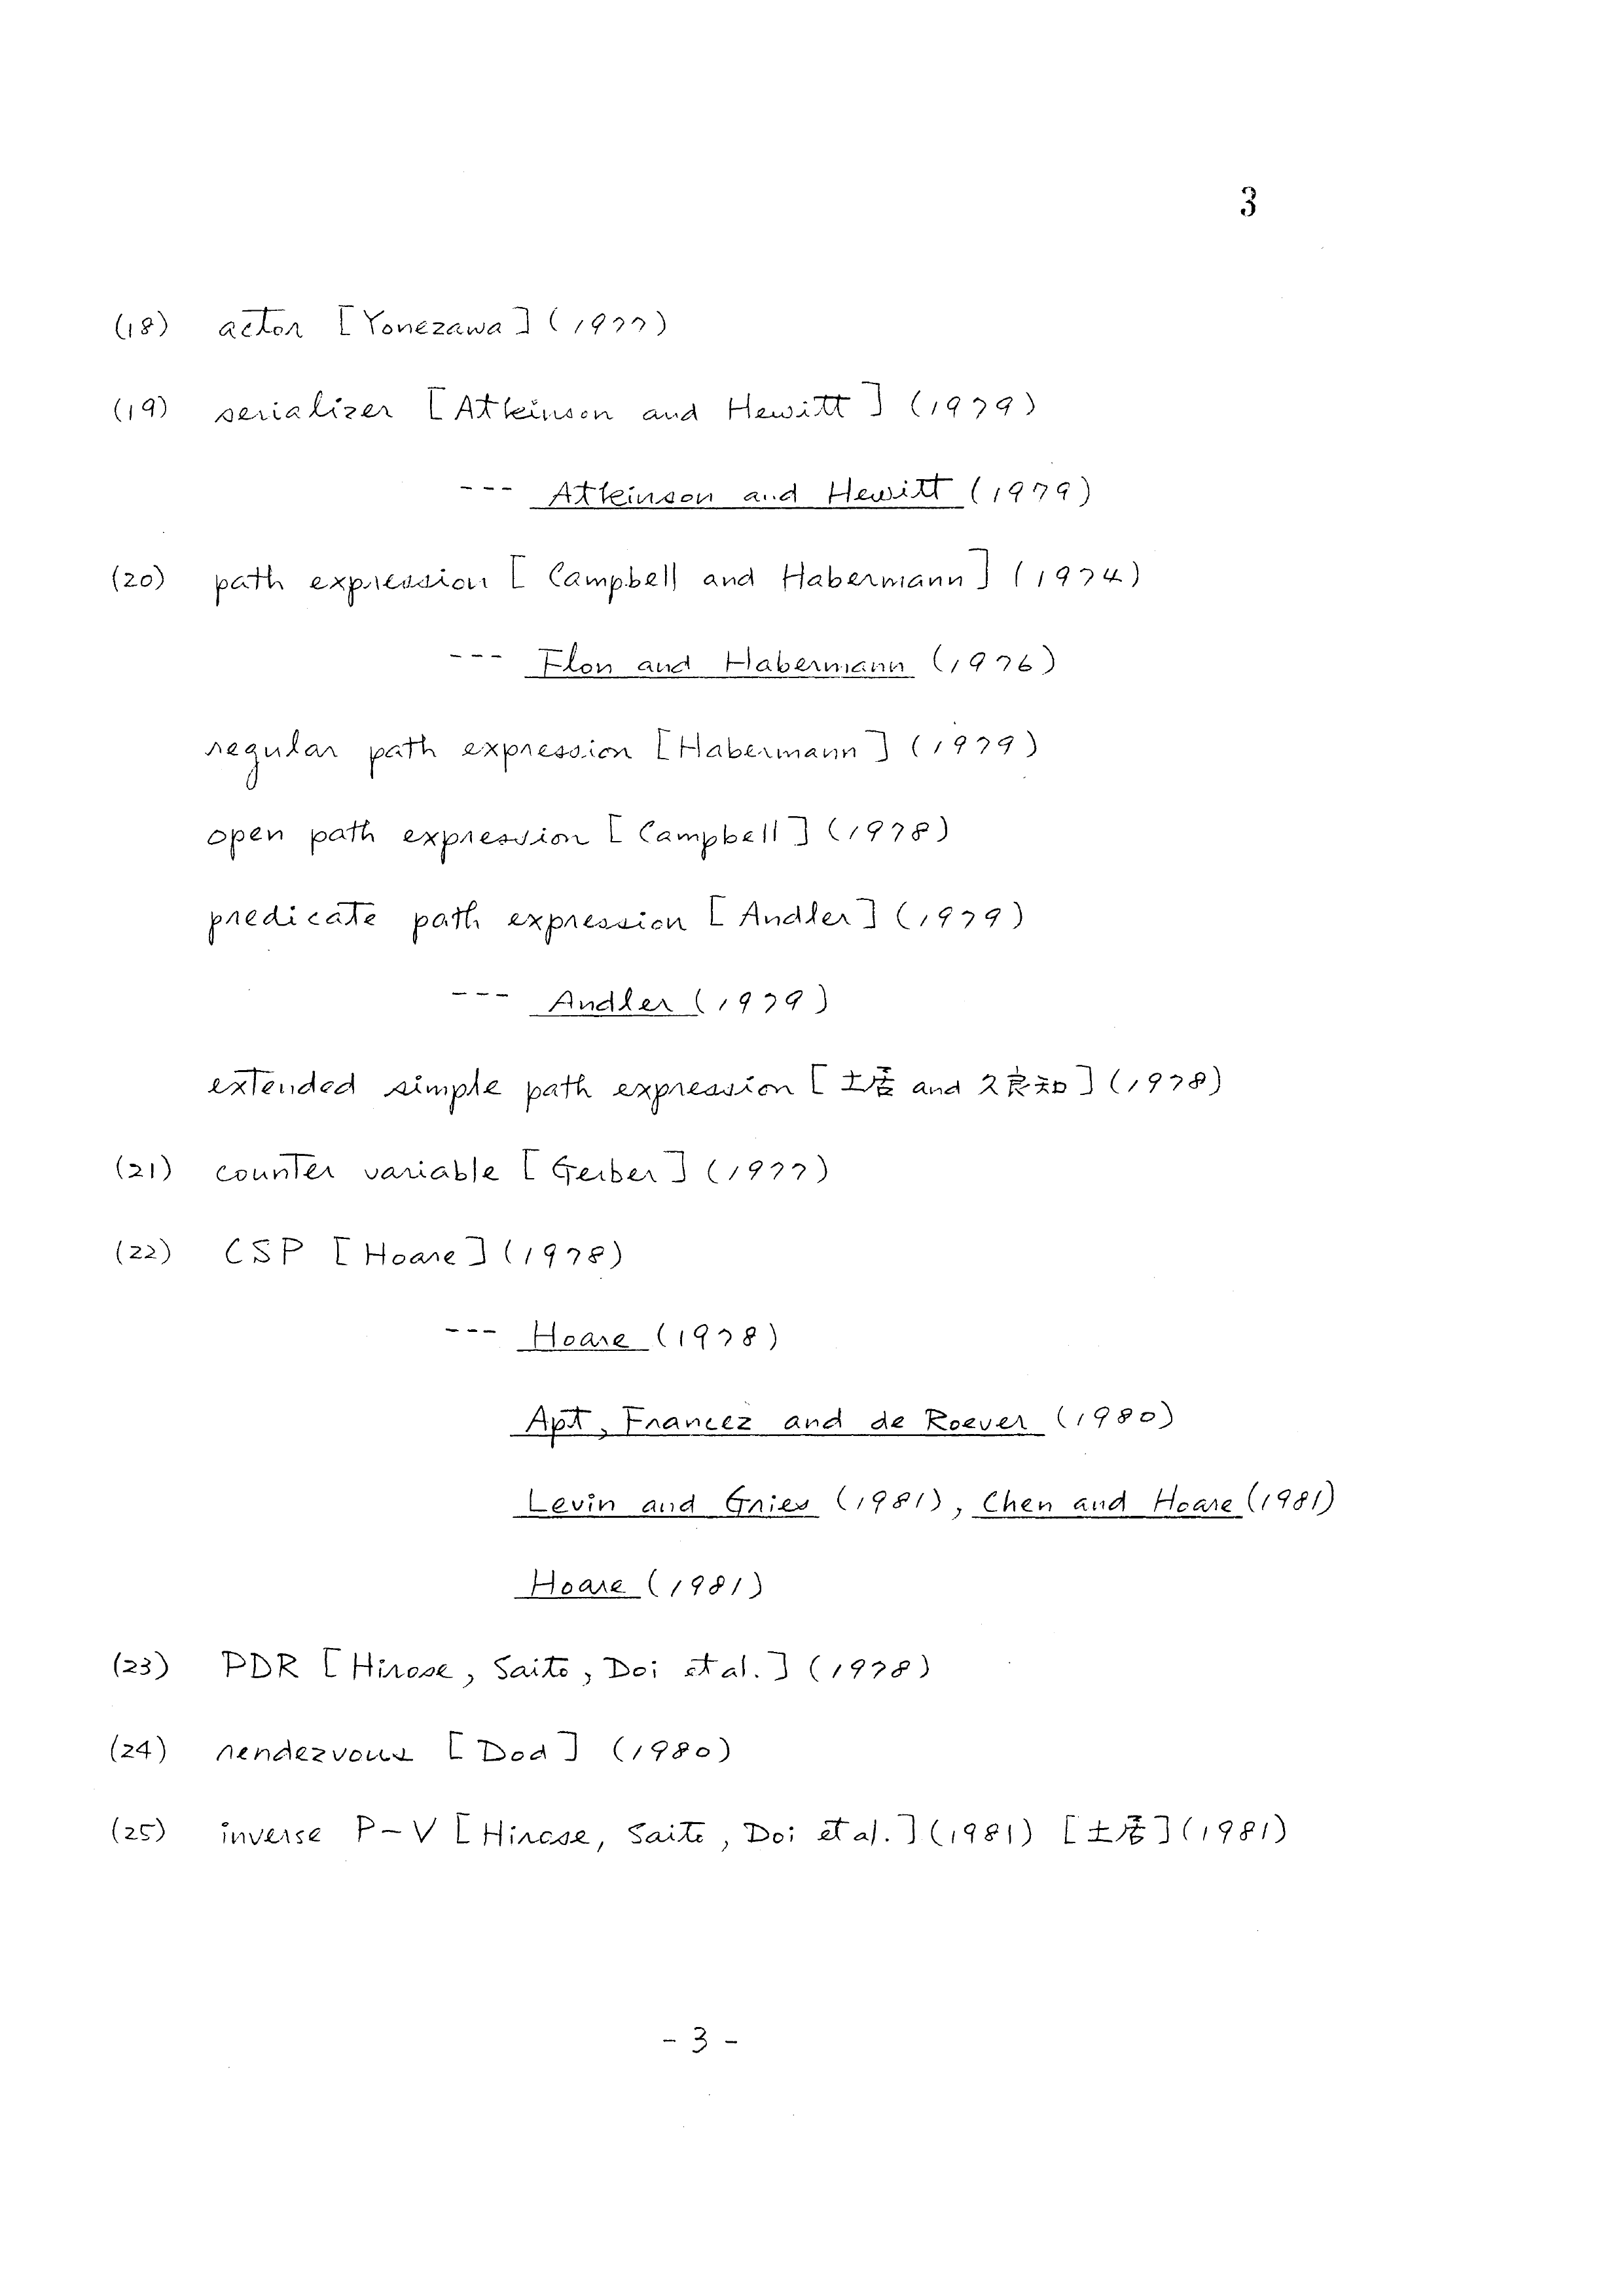 3
(18) actor [Yonezawa] (1977)
(19) serializer [Atkinson and Hewitt] (1979)
--- Atkinson and Hewitt (1979)
(20) path expression [Campbell and Habermann] (1974)
--- Flon and Habermann (1976)
regular path expression [Habermann] (1979)
open path expression [Campbell] (1978)
predicate path expression [Andler] (1979)
--- Andler (1979)
extended simple path expression [土居 and 久良知] (1978)
(21) counter variable [Gerber] (1977)
(22) CSP [Hoare] (1978)
--- Hoare (1978)
Apt, Francez and de Roever (1980)
Levin and Gries (1981), Chen and Hoare (1981)
Hoare (1981)
(23) PDR [Hirose, Saito, Doi et al.] (1978)
(24) rendezvous [Dod] (1980)
(25) inverse P-V [Hirose, Saito, Doi et al.] (1981) [土居] (1981)
- 3 -